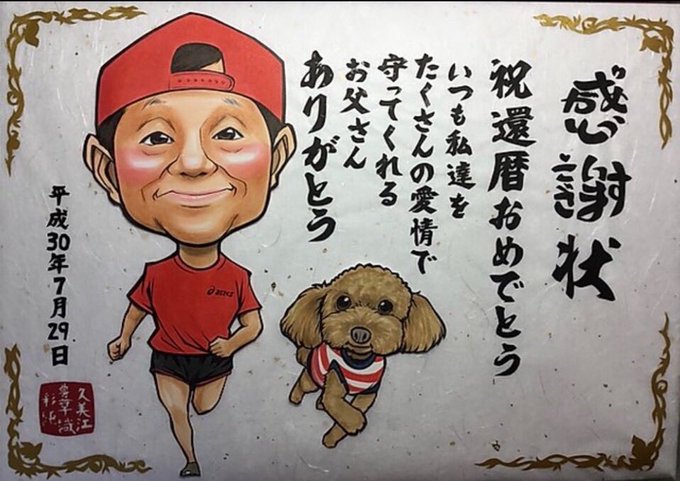 感謝状
祝還暦おめでとう
いつも私達を
たくさんの愛情で
守ってくれる
お父さん
ありがとう
平成30年7月29日
asics
久美江